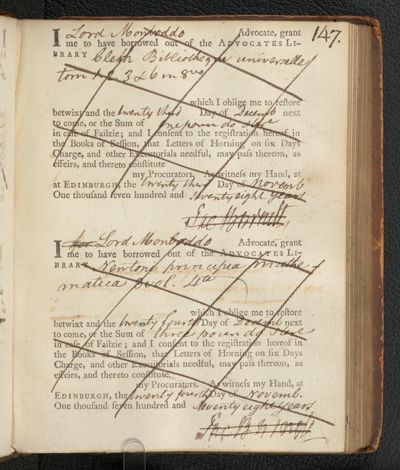 147.
I Lord Monboddo Advocate, grant
me to have borrowed out of the ADVOCATES LI-
BRARY Clerk Bibliotheque universelle
tom 1. 2. 3 & 6 in 8vo
which I oblige me to restore
betwixt and the twenty third Day of Decemb next
to come, or the Sum of one pound
in case of Failzie; and I consent to the registration hereof in
the Books of Session, that Letters of Horning on six Days
Charge, and other Executorials needful, may pass thereon, as
effeirs, and thereto constitute
my Procurators. As witness my Hand, at
at EDINBURGH, the twenty third Day of Novemb
One thousand seven hundred and seventy eight years
I Lord Monboddo Advocate, grant
me to have borrowed out of the ADVOCATES LI-
BRARY Newtons principia mathe-
matica vol. 4to
which I oblige me to restore
betwixt and the twenty fourth Day of Decemb next
to come, or the Sum of three pounds
in case of Failzie; and I consent to the registration hereof in
the Books of Session, that Letters of Horning on six Days
Charge, and other Executorials needful, may pass thereon, as
effeirs, and thereto constitute
my Procurators. As witness my Hand, at
EDINBURGH, the twenty fourth Day of Novemb.
One thousand seven hundred and seventy eight years